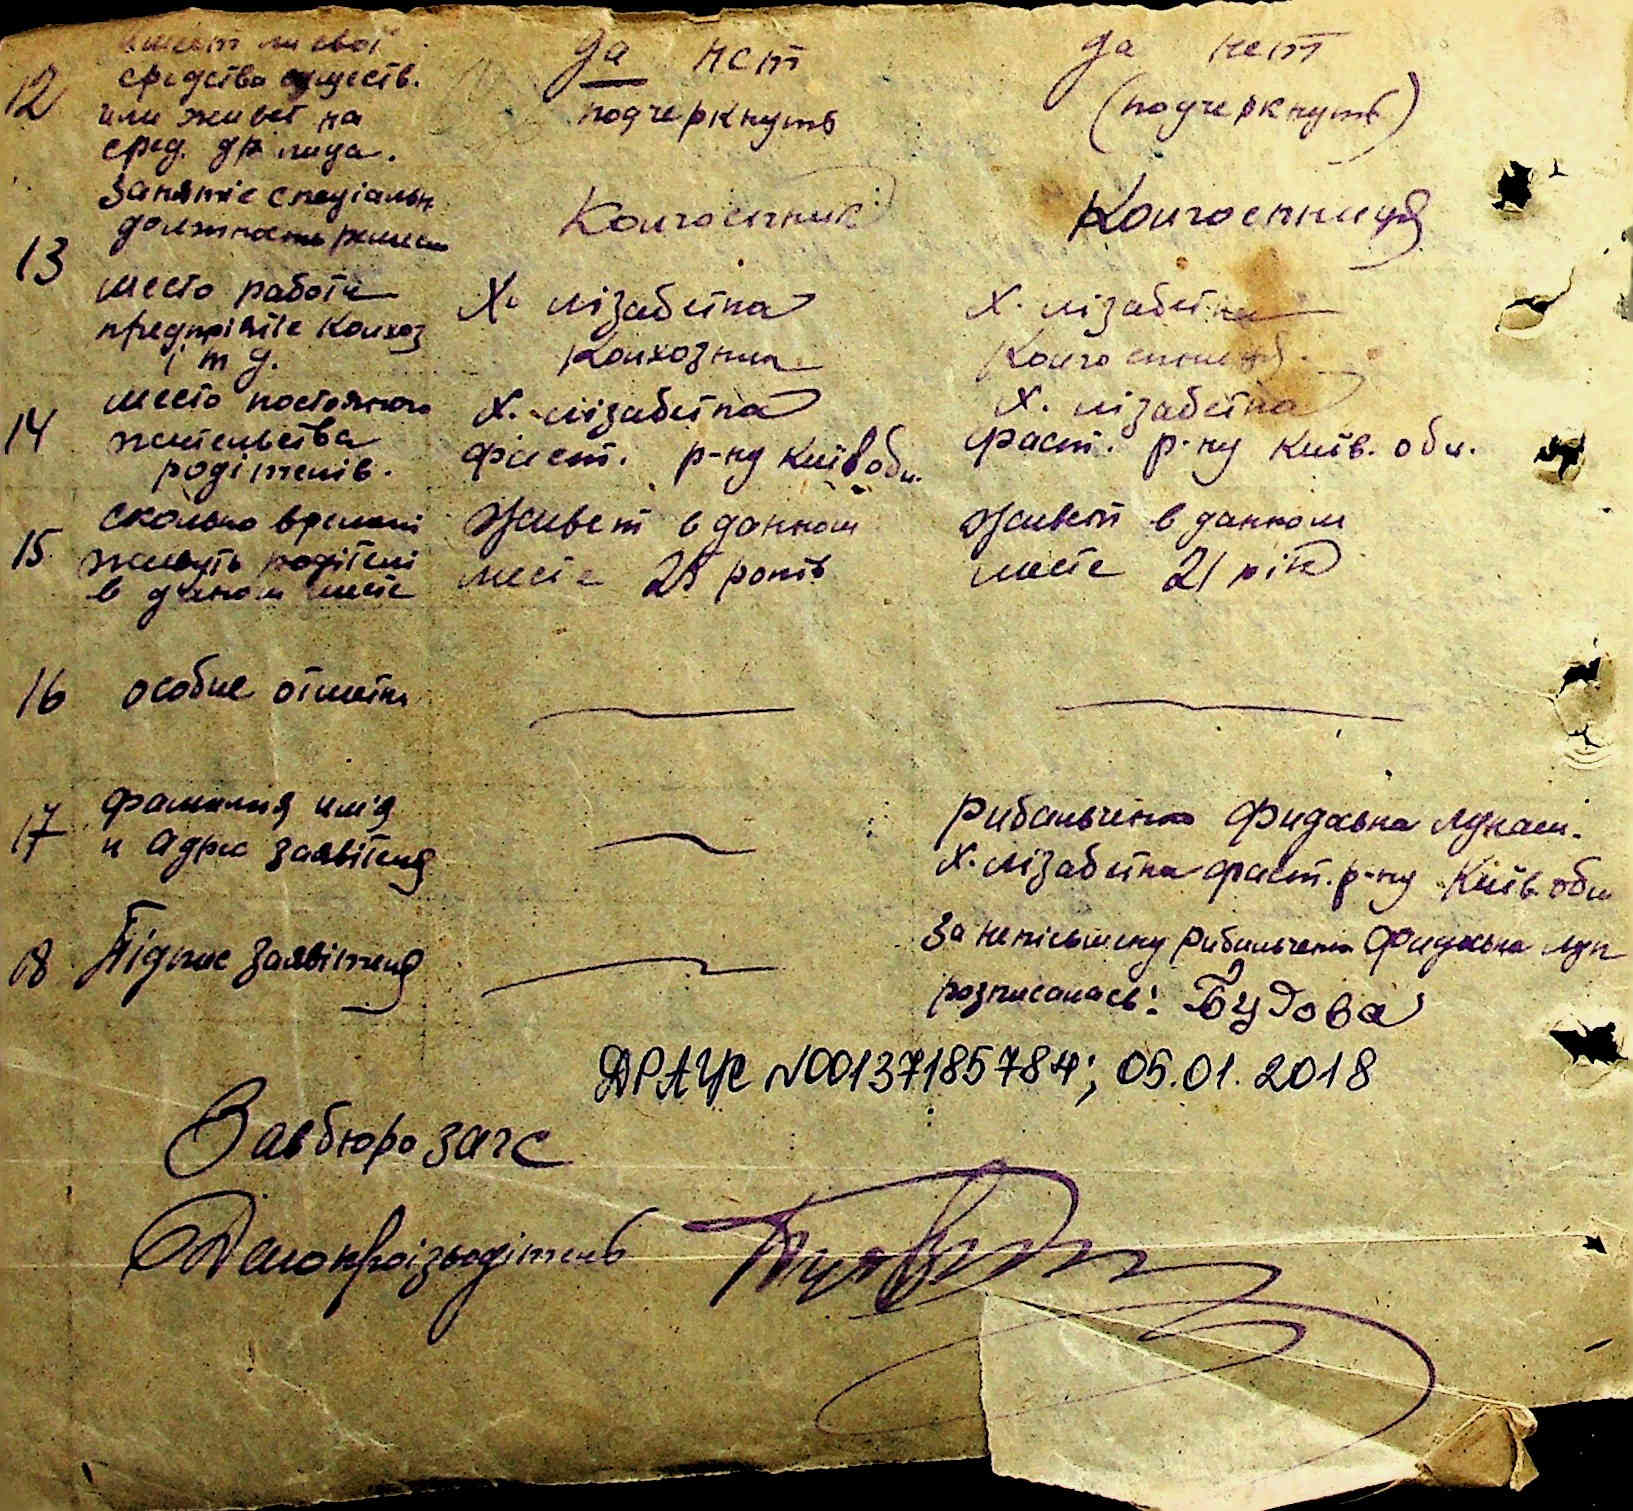 12 имеет ли свої
средства существ.
или живет на
сред. др лица.
да нет
подчеркнуть
да нет
(подчеркнуть)
13 Занятіе спеціальн
должность ремесл
Колгоспник
Колгоспниця
место работи
предпріятіе Колхоз
і т д.
Х. Лізабетпа
Колхозник
Х. Лізабетпа
Колгоспниця.
14 место постоянного
жительства
родітелів.
Х. Лізабетпа
Фаст. р-ну Київ обл.
Х. Лізабетпа
Фаст. р-ну Київ. обл.
15 сколько времені
живуть родітелі
в даном месте
Живет в данном
месте 25 років
Живет в данном
месте 21 рік
16 особие отметки
17 фамилия имія
и Адрес заявітеля
Рибальченко Фидосьна Лукаш.
Х. Лізабетпа Фаст. р-ну Київ обл
18 Підпис заявітеля
За неписьмену Рибальченко Фидосьна Лук
розписалась: Будова
ДРАЦС N00137185784; 05.01.2018
Завбюро загс
Делопроізводітель